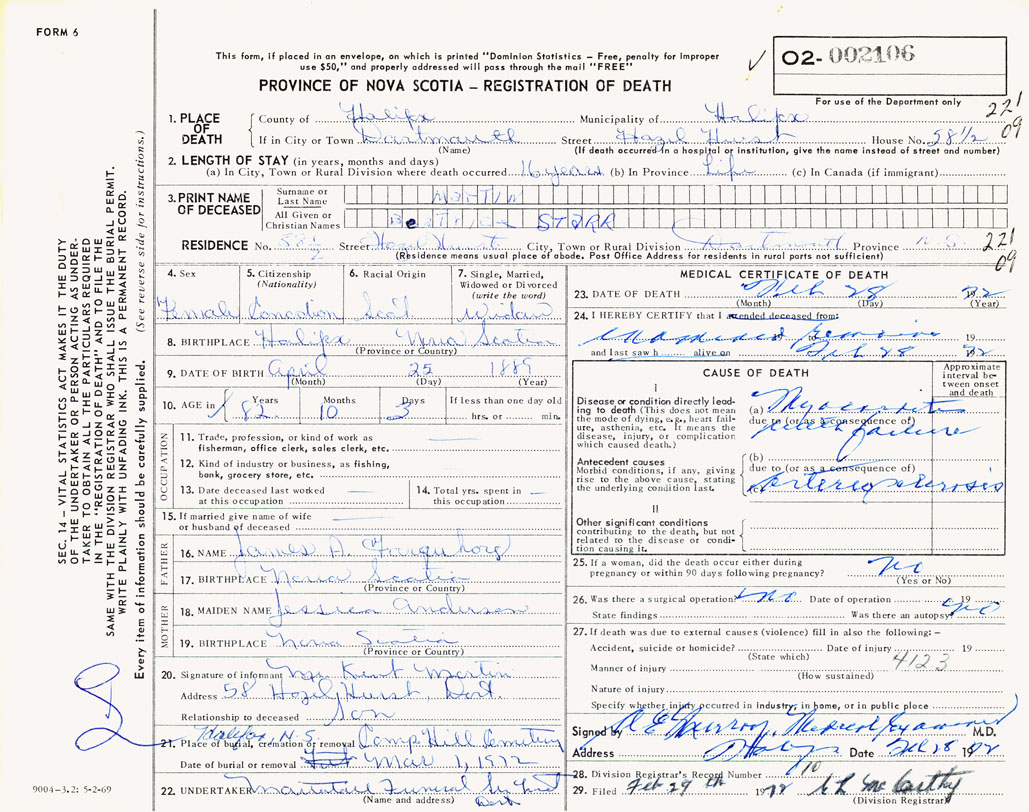 FORM 6
This form, if placed in an envelope, on which is printed "Dominion Statistics – Free, penalty for improper
use $50," and properly addressed will pass through the mail "FREE"
✓ O2- 002106
PROVINCE OF NOVA SCOTIA – REGISTRATION OF DEATH
For use of the Department only
221
09
1. PLACE OF DEATH
County of Halifx Municipality of Halifx
If in City or Town Dartmouth Street Hazel Hurst House No. 58½
(Name) (If death occurred in a hospital or institution, give the name instead of street and number)
2. LENGTH OF STAY (in years, months and days)
(a) In City, Town or Rural Division where death occurred 16 years (b) In Province Life (c) In Canada (if immigrant)
3. PRINT NAME OF DECEASED
Surname or Last Name MARTIN
All Given or Christian Names BeATRICE STARR
RESIDENCE No. 58½ Street Hazel Hurst City, Town or Rural Division Dartmouth Province N.S.
221
09
(Residence means usual place of abode. Post Office Address for residents in rural parts not sufficient)
4. Sex 5. Citizenship (Nationality) 6. Racial Origin 7. Single, Married, Widowed or Divorced (write the word)
Female Canadian Widow
8. BIRTHPLACE Halifx Nova Scotia
(Province or Country)
9. DATE OF BIRTH April 25 1889
(Month) (Day) (Year)
10. AGE in Years Months Days If less than one day old
82 10 3 hrs. or min.
OCCUPATION
11. Trade, profession, or kind of work as
fisherman, office clerk, sales clerk, etc.
12. Kind of industry or business, as fishing,
bank, grocery store, etc.
13. Date deceased last worked
at this occupation
14. Total yrs. spent in
this occupation
15. If married give name of wife
or husband of deceased
FATHER
16. NAME James A.
17. BIRTHPLACE Nova Scotia
(Province or Country)
MOTHER
18. MAIDEN NAME Jessica Anderson
19. BIRTHPLACE Nova Scotia
(Province or Country)
20. Signature of informant Mr. Kent Martin
Address 58 Hazel Hurst, Dart.
Relationship to deceased Son
Halifax, N.S.
21. Place of burial, cremation or removal Camp Hill Cemetery
Date of burial or removal Mar 1, 1972
22. UNDERTAKER Funeral
(Name and address) Dart
MEDICAL CERTIFICATE OF DEATH
23. DATE OF DEATH Feb 28 1972
(Month) (Day)
24. I HEREBY CERTIFY that I attended deceased from:
examined remains 19
and last saw h alive on Feb 28 1972
CAUSE OF DEATH
Approximate interval between onset and death
I
Disease or condition directly leading to death (This does not mean
the mode of dying, e.g., heart failure, asthenia, etc. It means the
disease, injury, or complication
which caused death.)
(a) Myocardite
due to (or as a consequence of)
failure
Antecedent causes
Morbid conditions, if any, giving
rise to the above cause, stating
the underlying condition last.
(b)
due to (or as a consequence of)
(c) Arteriosclerosis
II
Other significant conditions
contributing to the death, but not
related to the disease or condition causing it.
25. If a woman, did the death occur either during
pregnancy or within 90 days following pregnancy? No
(Yes or No)
26. Was there a surgical operation? No Date of operation 19
State findings Was there an autopsy? No
27. If death was due to external causes (violence) fill in also the following: –
Accident, suicide or homicide? Date of injury 19
(State which) 4123
Manner of injury
(How sustained)
Nature of injury
Specify whether injury occurred in industry, in home, or in public place
Signed by Medical Examiner M.D.
Address Date Feb 28 1972
28. Division Registrar's Record Number 110
29. Filed Feb 29th 1972 McCarthy
(Division Registrar)
SEC. 14 – VITAL STATISTICS ACT MAKES IT THE DUTY
OF THE UNDERTAKER OR PERSON ACTING AS UNDER-
TAKER TO OBTAIN ALL THE PARTICULARS REQUIRED
IN THE "REGISTRATION OF DEATH" AND TO FILE THE
SAME WITH THE DIVISION REGISTRAR WHO SHALL ISSUE THE BURIAL PERMIT.
WRITE PLAINLY WITH UNFADING INK. THIS IS A PERMANENT RECORD.
Every item of information should be carefully supplied. (See reverse side for instructions.)
9004-3.2: 5-2-69